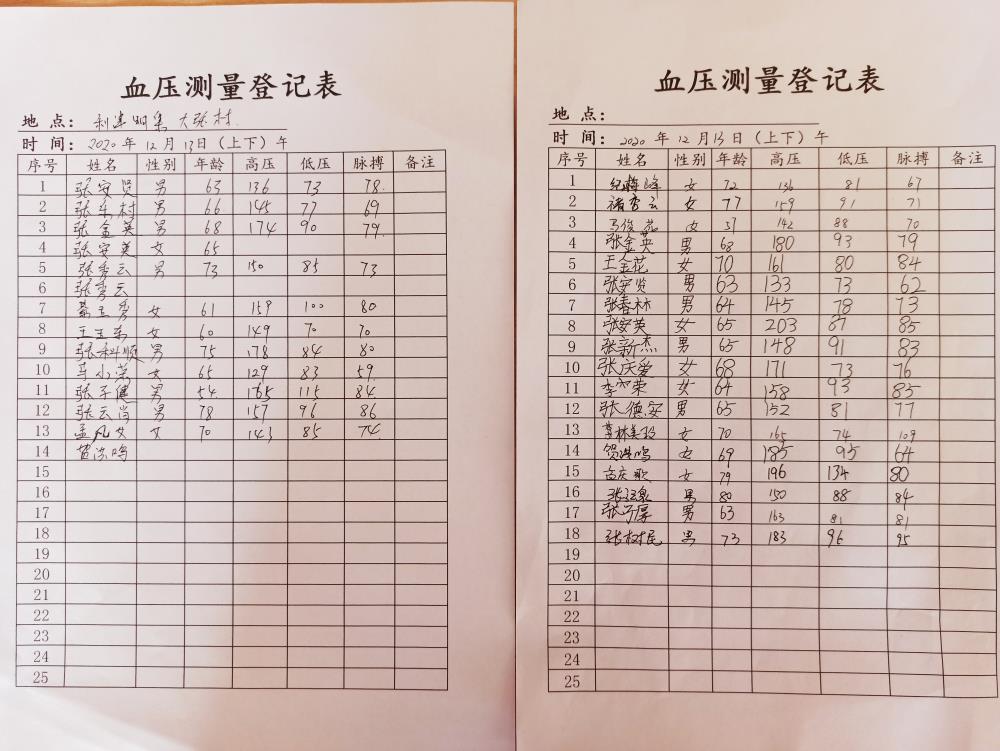 血压测量登记表
地 点： 利津明集 大张村
时 间： 2020 年 12 月 13 日（上下）午
序号 姓名 性别 年龄 高压 低压 脉搏 备注
1 张安贤 男 63 136 73 78
2 张乐村 男 66 145 77 69
3 张金英 男 68 174 90 79
4 张安英 女 65
5 张秀云 男 73 150 85 73
6 张秀云
7 玉秀 女 61 159 100 80
8 王玉 女 60 149 70 70
9 张科顺 男 75 178 84 80
10 马小荣 女 65 129 83 59
11 张子健 男 54 165 115 84
12 张云岗 男 78 157 96 86
13 孟凡女 女 70 143 85 74
14
15
16
17
18
19
20
21
22
23
24
25
血压测量登记表
地 点：
时 间： 2020 年 12 月 13 日（上下）午
序号 姓名 性别 年龄 高压 低压 脉搏 备注
1 女 72 136 81 67
2 褚秀云 女 77 159 91 71
3 马俊苑 女 51 142 88 70
4 张金英 男 68 180 93 79
5 王金花 女 70 161 80 84
6 张安贤 男 63 133 73 62
7 张春林 男 64 145 78 73
8 张安英 女 65 203 87 85
9 张新杰 男 65 148 91 83
10 张庆爱 女 68 171 73 76
11 李荣 女 64 158 93 85
12 张德安 男 65 152 81 77
13 女 70 165 74 109
14 贺洪鸣 女 69 185 95 64
15 孟庆歌 女 79 196 134 80
16 张 男 80 150 88 84
17 张子厚 男 63 163 81 81
18 张树民 男 73 183 96 95
19
20
21
22
23
24
25